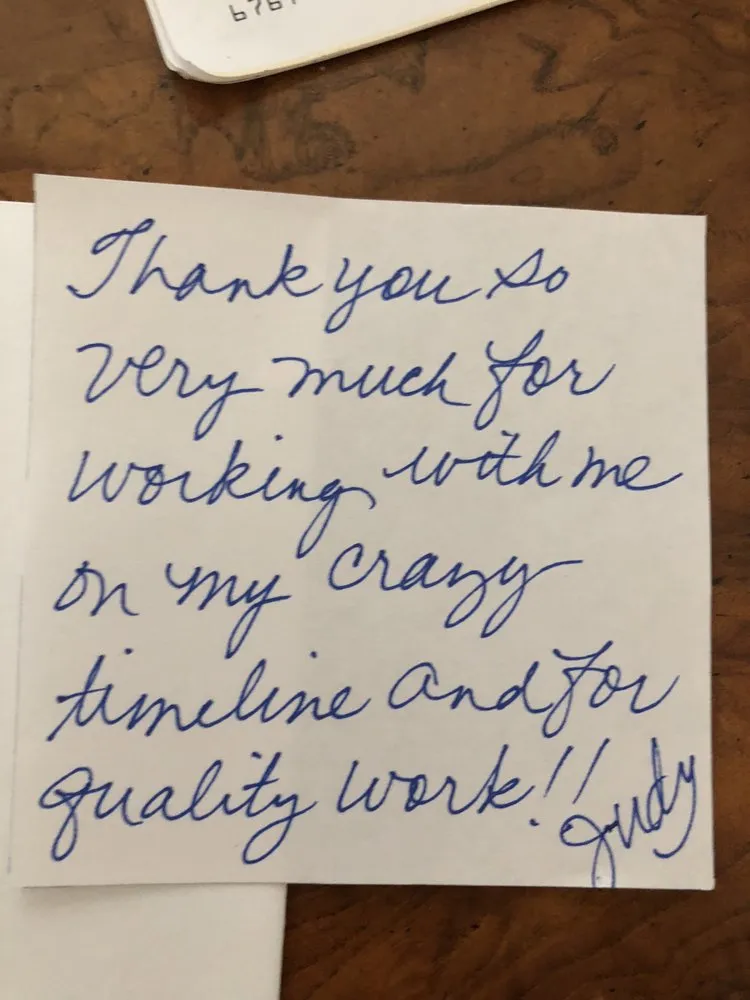 Thank you so
very much for
working with me
on my crazy
timeline and for
quality work!!
Judy